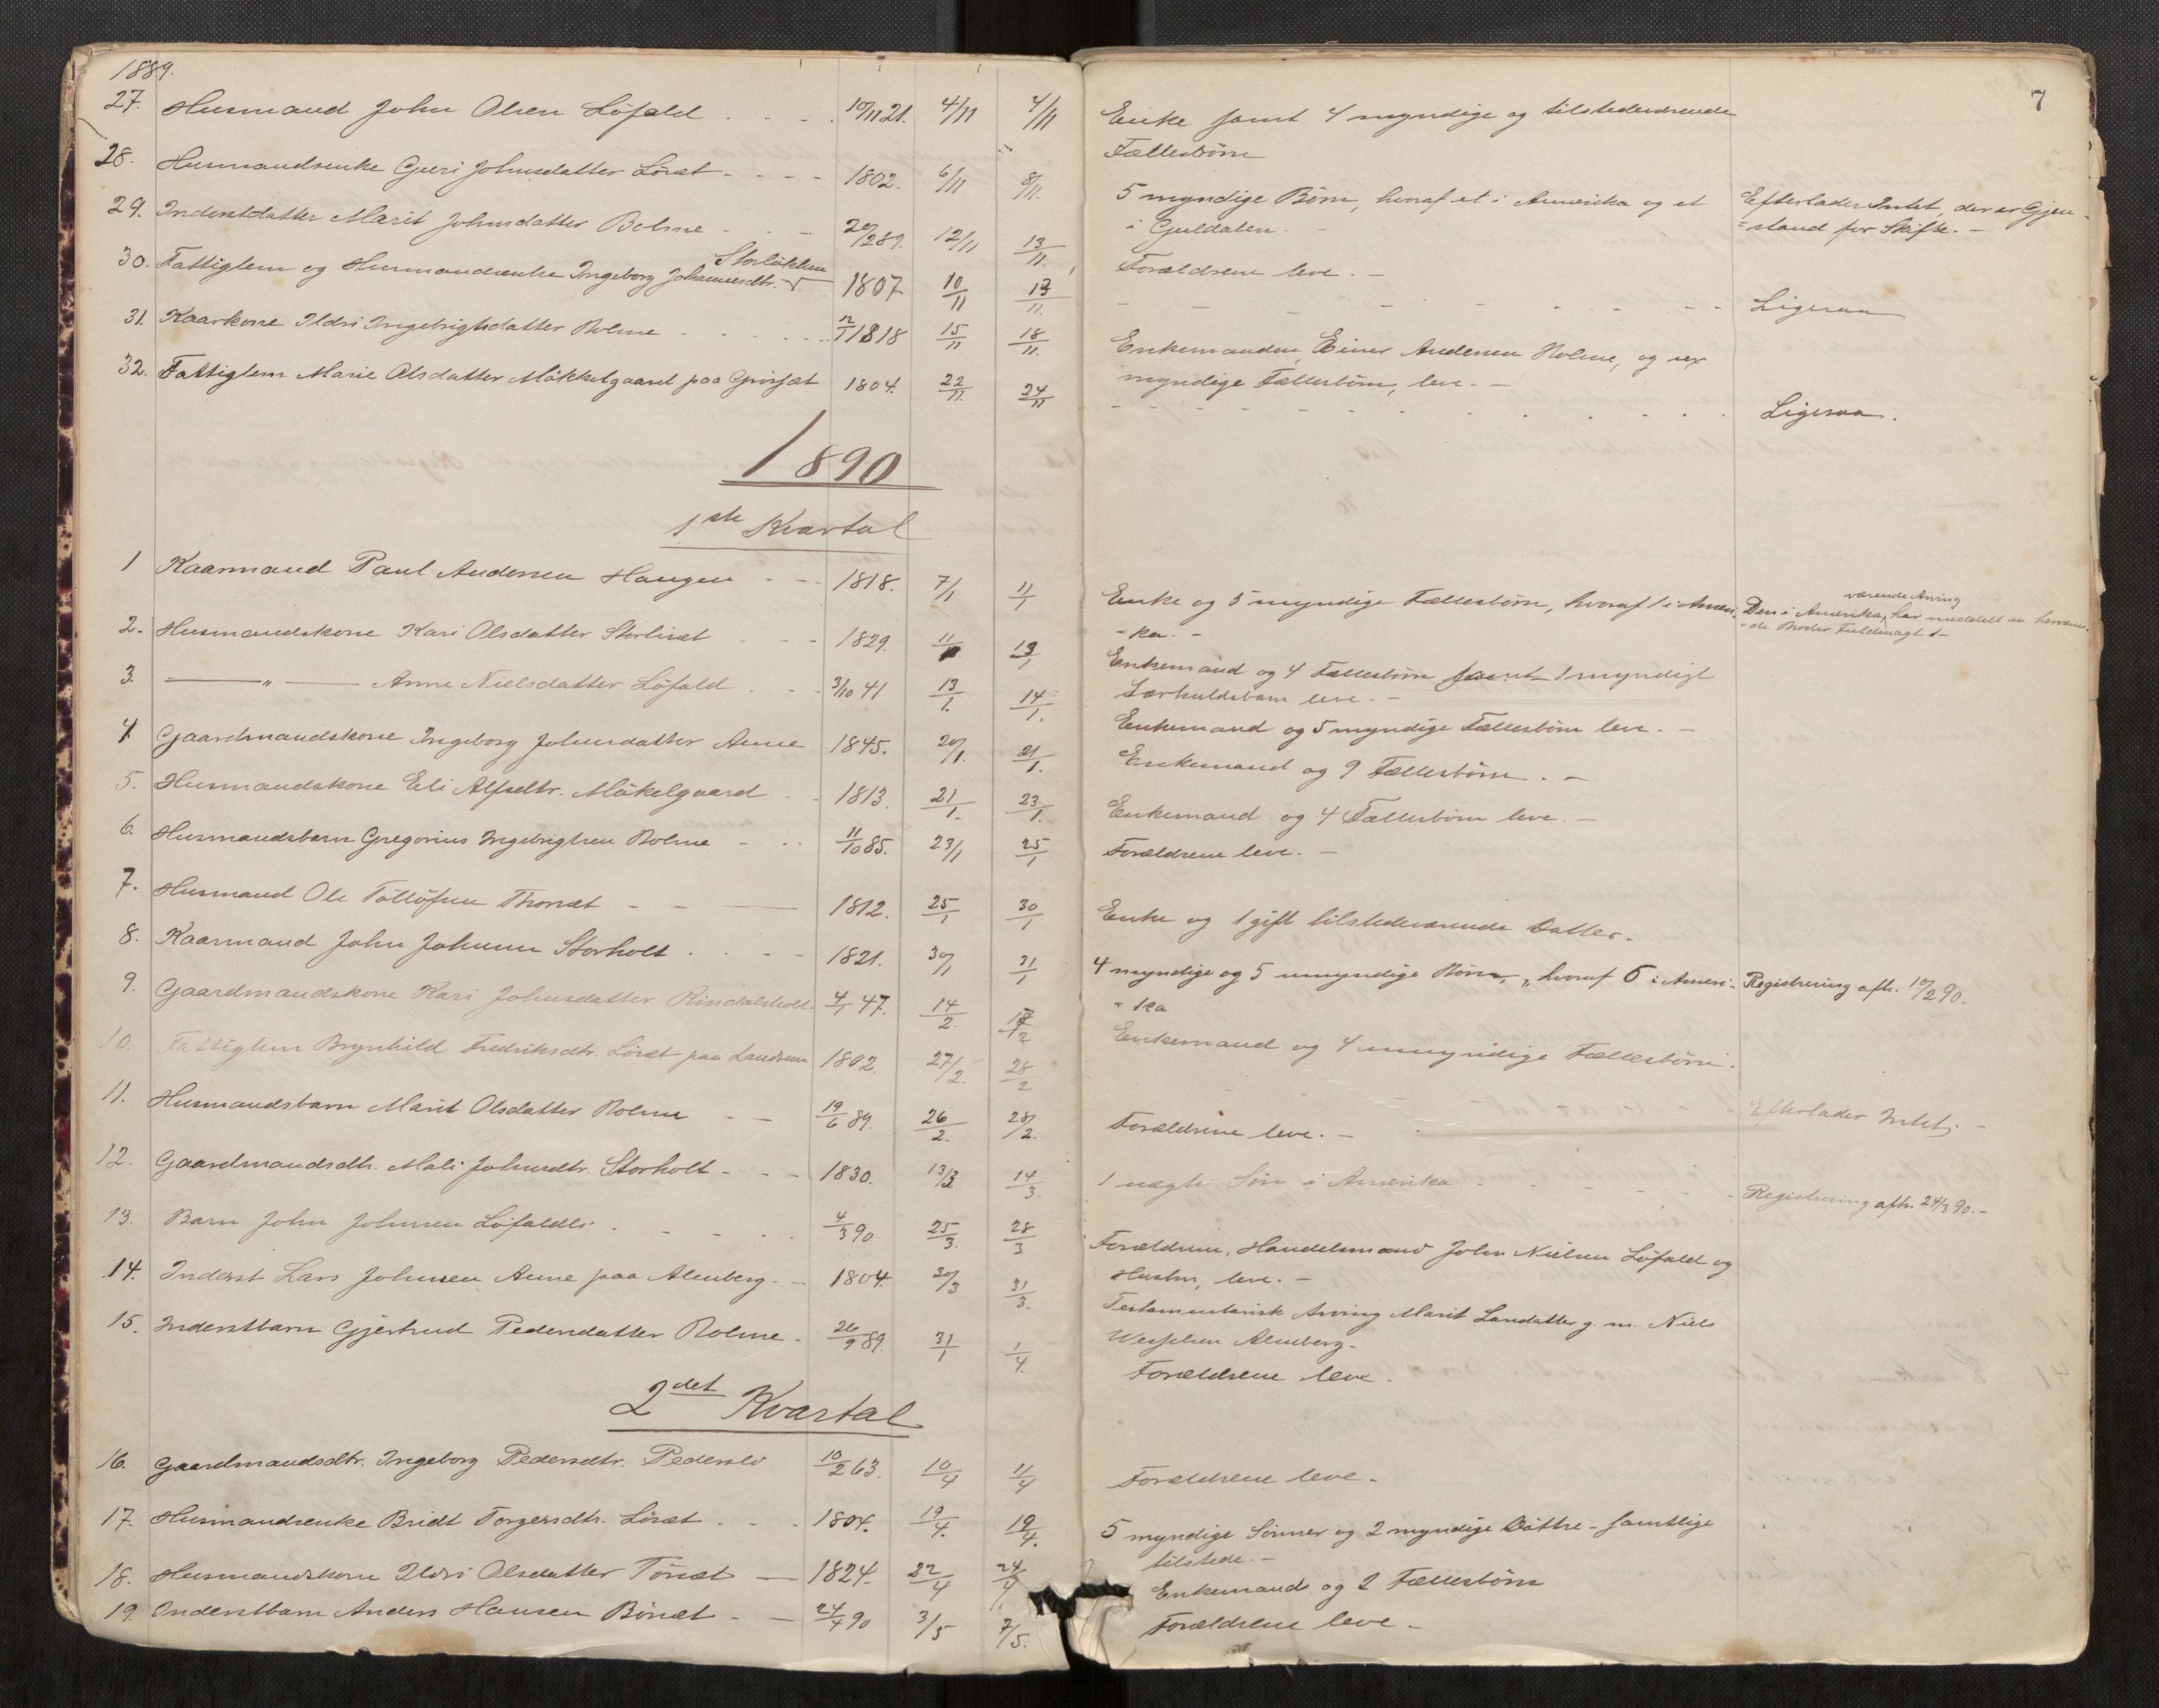 1889.
7
27. Husmand John Olsen Löfald . . . 10/11 21. 4/11 4/11 Enke samt 4 myndige og tilstedeværende
Fællesbörn
28. Husmandsenke Guri Johnsdatter Löset - - - - 1802. 6/11 8/11. 5 myndige Börn, hvoraf et i Amerika og et Efterlader Intet, der er Gjen-
i Guldalen. - =stand for Skifte. -
29. Inderstdatter Marit Johnsdatter Bolme - - - 20/2 89. 12/11 13/11. Forældrene leve. -
Storlökken
30. Fattiglem og Husmandsenke Ingeborg Johannesdtr. 1807 10/11 13/11. - - - - - - Ligesaa
31. Kaarkone Ildri Ingebrigtsdatter Bolme - . . . . 12/1 1818 15/11 18/11. Enkemanden, Einer Andersen Holme, og sex
myndige Fællesbörn, leve. -
32. Fattiglem Marie Olsdatter Mökkelgaard paa Grisset 1804. 22/11. 24/11 - - - - - - - Ligesaa.
1890
1ste Kvartal
1 Kaarmand Paul Andersen Haugen - - - 1818. 7/1 11/1 Enke og 5 myndige Fællesbörn, hvoraf 1 i Ameri-
-ka. -
værende Arving
Den i Amerika har meddelt en herværen-
-de Broder Fuldmagt. -
2. Husmandskone Kari Olsdatter Storliset - - - 1829. 11/1 13/1 Enkemand og 4 Fællesbörn samt 1 myndigt
Særkuldsbarn leve. -
3. —— " —— Anne Nielsdatter Löfald - - - 3/10 41 13/1. 14/1. Enkemand og 5 myndige Fællesbörn leve. -
4 Gaardmandskone Ingeborg Johnsdatter Aune 1845. 20/1. 21/1. Enkemand og 9 Fællesbörn. -
5. Husmandskone Eli Alfsdtr. Mökelgaard - - 1813. 21/1. 23/1. Enkemand og 4 Fællesbörn leve. -
6. Husmandsbarn Gregorius Ingebrigtsen Bolme - . . 11/10 85. 23/1 25/1 Forældrene leve. -
7. Husmand Ole Tölløfsen Thorset - - — 1812. 25/1 30/1 Enke og 1 gift tilstedeværende Datter.
8. Kaarmand John Johnsen Storholt . . . - - 1821. 30/1 31/1 4 myndige og 5 umyndige Börn, „ hvoraf 6 i Ameri- Registrering afh. 10/2 90.
-ka
9. Gaardmandskone Kari Johnsdatter Rindalsholt. 4/1 47. 14/2. 17/2 Enkemand og 4 umyndige Fællesbörn.
10. Fattiglem Brynhild Fredriksdtr. Löset paa Landsem 1802. 27/2. 28/2 Efterlader Intet. -
11. Husmandsbarn Marit Olsdatter Bolme - - 19/6 89. 26/2. 28/2. Forældrene leve. -
12. Gaardmandsdtr. Mali Johnsdtr. Storholt - - - 1830. 13/3 14/3. 1 uægte Sön i Amerika - - - - - Registrering afh. 24/3 90. -
13. Barn John Johnsen Löfaldli . - - . 4/3 90 25/3. 28/3 Forældrene, Handelsmand John Nielsen Löfald og
Hustru, leve. -
14. Inderst Lars Johnsen Aune paa Almberg - - 1804. 30/3 31/3. Testamentarisk Arving Marit Larsdatter g. m. Niels
Wesselsen Almberg -
15. Inderstbarn Gjertrud Pedersdatter Bolme - 26/9 89. 31/1 1/4. Forældrene leve.
2det Kvartal
16. Gaardmandsdtr. Ingeborg Pedersdtr. Pederslö 10/2 63. 10/4 11/4 Forældrene leve -
17. Husmandsenke Bridt Torgersdtr. Löset . . . 1804. 19/4. 19/4. 5 myndige Sönner og 2 myndige Döttre - samtlige
tilstede. -
18. Husmandskone Ildri Olsdatter Töriset — 1824. 22/4 24/4. Enkemand og 2 Fællesbörn
19. Inderstbarn Anders Hansen Böriset - — 24/4 90 3/5 7/5. Forældrene leve -